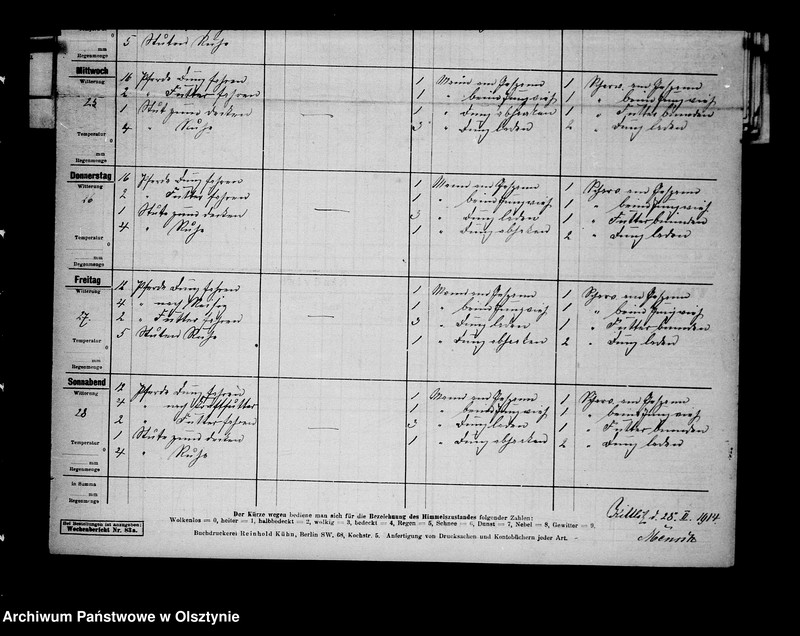 5 Stuten Ruhe
mm
Regenmenge
Mittwoch
Witterung
25
Temperatur
mm
Regenmenge
16 Pferde Dung fahren
2 " Futter fahren
1 Stute zum decken
4 " Ruhe
1 Mann am Gespann
1 " beim Jungvieh
1 " Dung abhacken
3 " Dung laden
1 Scharw. am Gespann
1 " beim Jungvieh
1 " Futter
2 " Dung laden
Donnerstag
Witterung
Temperatur
mm
Regenmenge
16 Pferde Dung fahren
2 " Futter fahren
1 Stute zum decken
4 " Ruhe
1 Mann am Gespann
1 " beim Jungvieh
3 " Dung laden
1 " Dung abhacken
1 Scharw. am Gespann
1 " beim Jungvieh
1 " Futter
2 " Dung laden
Freitag
Witterung
27.
Temperatur
mm
Regenmenge
12 Pferde Dung fahren
4 " nach
2 " Futter fahren
5 Stuten Ruhe
1 Mann am Gespann
1 " beim Jungvieh
3 " Dung laden
1 " Dung abhacken
1 Scharw. am Gespann
1 " beim Jungvieh
1 " Futter
2 " Dung laden
Sonnabend
Witterung
28
Temperatur
mm
Regenmenge
12 Pferde Dung fahren
4 " nach Kraftfutter
2 " Futter fahren
1 Stute zum decken
4 " Ruhe
1 Mann am Gespann
1 " beim Jungvieh
3 " Dung laden
1 " Dung abhacken
1 Scharw. am Gespann
1 " beim Jungvieh
1 " Futter
2 " Dung laden
in Summa
mm
Regenmenge
Der Kürze wegen bediene man sich für die Bezeichnung des Himmelszustandes folgender Zahlen:
Wolkenlos = 0, heiter = 1, halbbedeckt = 2, wolkig = 3, bedeckt = 4, Regen = 5, Schnee = 6, Dunst = 7, Nebel = 8, Gewitter = 9.
Buchdruckerei Reinhold Kühn, Berlin SW. 68, Kochstr. 5. Anfertigung von Drucksachen und Kontobüchern jeder Art.
Bei Bestellungen ist anzugeben:
Wochenbericht Nr. 83a.
d. 28. II. 1914
Archiwum Państwowe w Olsztynie